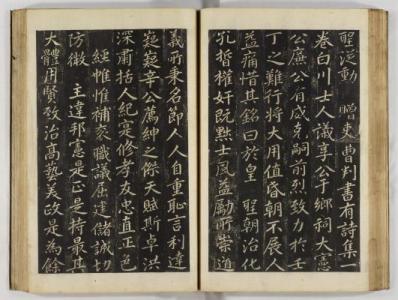 聖淀動 贈吏曹判書有詩集一
卷白川士人議享公于鄉祠大憲
公廉公有咸克嗣前烈致力於壬
丁之難行將大用值昏朝不展人
益痛惜其銘曰於皇 聖朝治化
孔晢權奸既黜士風益勵所崇道
義所秉名節人人自重恥言利達
嶷嶷辛公薦紳之傑天賦斯卓洪
深肅括人紀寔修孝友忠直正色
經惟惟補袞職議屈建儲誠切
防微 主違邦憲是正是持最其
大體用賢致治高藝美政是為餘